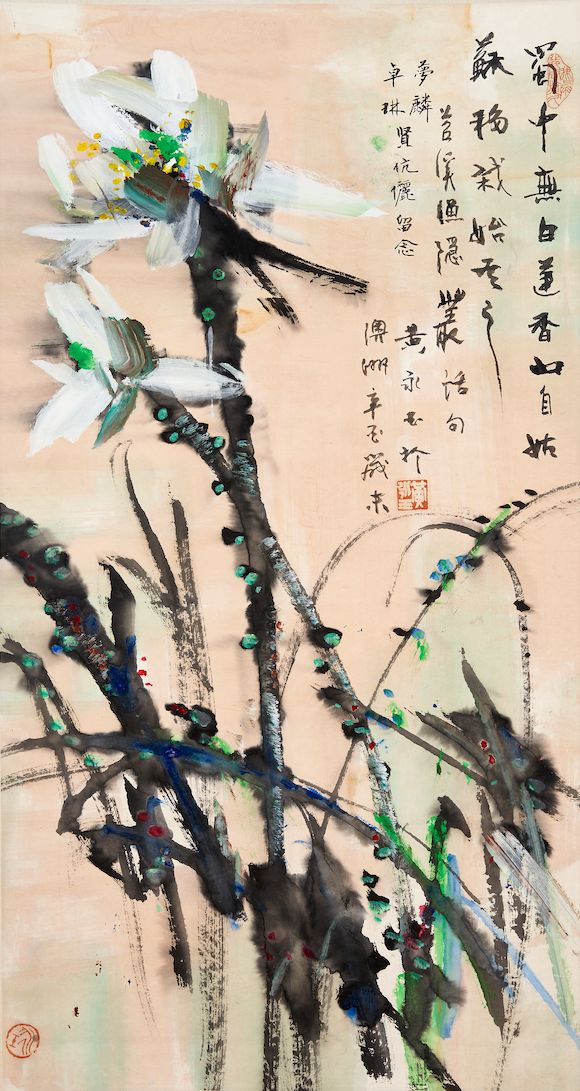 蜀中無白蓮香山自姑
蘇移栽始有之
苕溪漁隱叢話句
夢麟
卓琳賢伉儷留念
黃永玉於
澳洲辛酉歲末